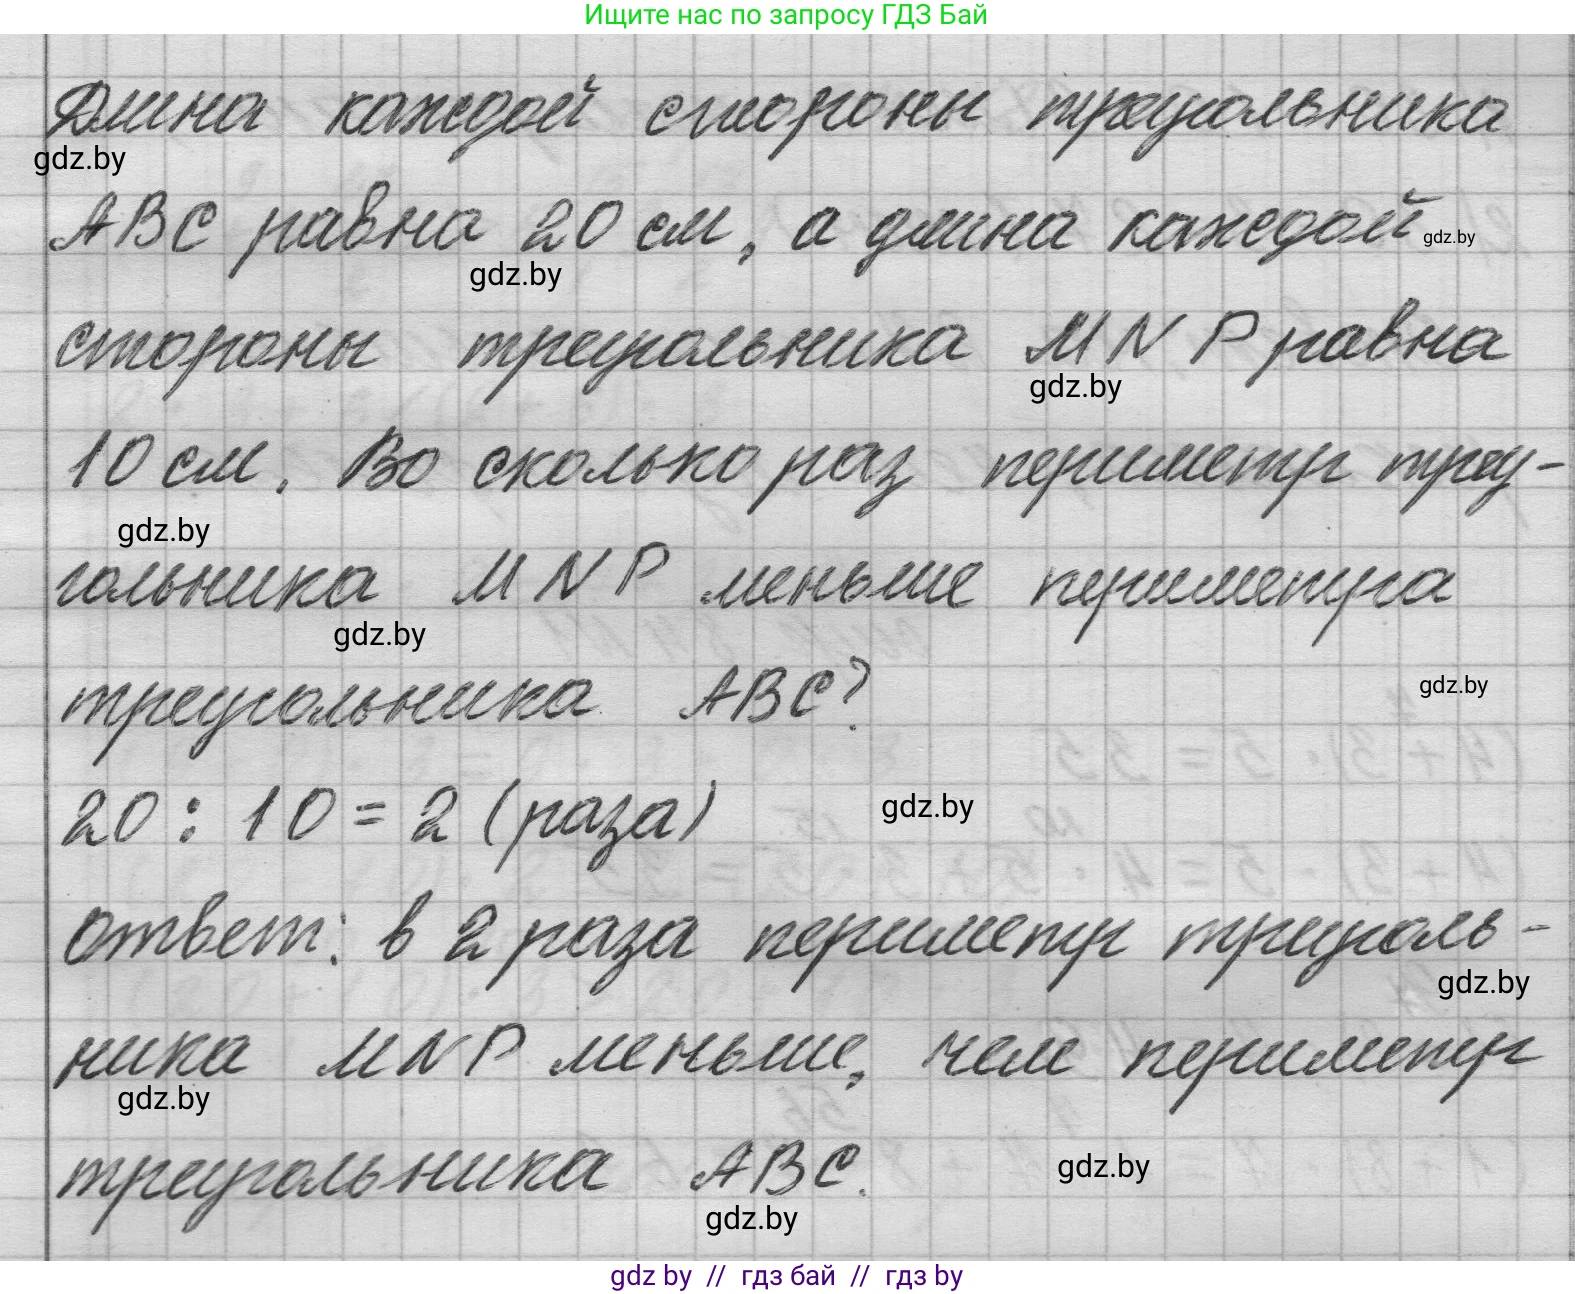 Ищите нас по запросу ГДЗ Бай
Длина каждой стороны треугольника
gdz.by
ABC равна 20 см, а длина каждой
gdz.by
gdz.by
стороны треугольника MNP равна
gdz.by
10 см. Во сколько раз периметр треу-
gdz.by
гольника MNP меньше периметра
gdz.by
треугольника ABC?
gdz.by
20 : 10 = 2 (раза)
gdz.by
Ответ: в 2 раза периметр треуголь-
gdz.by
ника MNP меньше, чем периметр
gdz.by
треугольника ABC.
gdz.by
gdz.by
gdz by // гдз бай // гдз by